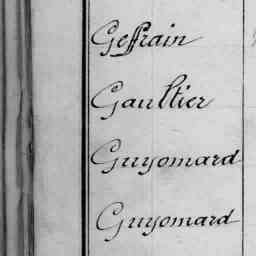 Geffrain
Gaultier
Guyomard
Guyomard